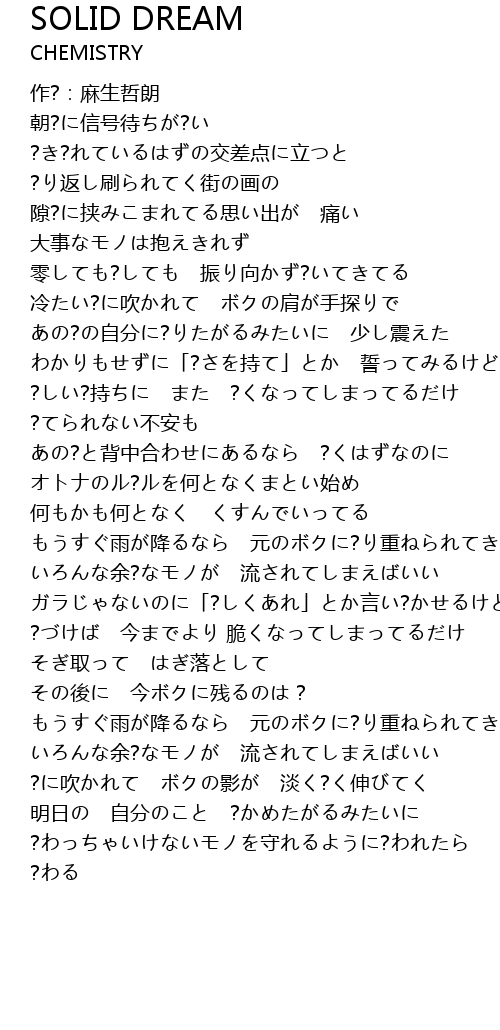 SOLID DREAM
CHEMISTRY
作?：麻生哲朗
朝?に信号待ちが?い
?き?れているはずの交差点に立つと
?り返し刷られてく街の画の
隙?に挟みこまれてる思い出が　痛い
大事なモノは抱えきれず
零しても?しても　振り向かず?いてきてる
冷たい?に吹かれて　ボクの肩が手探りで
あの?の自分に?りたがるみたいに　少し震えた
わかりもせずに「?さを持て」とか　誓ってみるけど
?しい?持ちに　また　?くなってしまってるだけ
?てられない不安も
あの?と背中合わせにあるなら　?くはずなのに
オトナのル?ルを何となくまとい始め
何もかも何となく　くすんでいってる
もうすぐ雨が降るなら　元のボクに?り重ねられてき
いろんな余?なモノが　流されてしまえばいい
ガラじゃないのに「?しくあれ」とか言い?かせるけど
?づけば　今までより 脆くなってしまってるだけ
そぎ取って　はぎ落として
その後に　今ボクに残るのは ?
もうすぐ雨が降るなら　元のボクに?り重ねられてき
いろんな余?なモノが　流されてしまえばいい
?に吹かれて　ボクの影が　淡く?く伸びてく
明日の　自分のこと　?かめたがるみたいに
?わっちゃいけないモノを守れるように?われたら
?わる